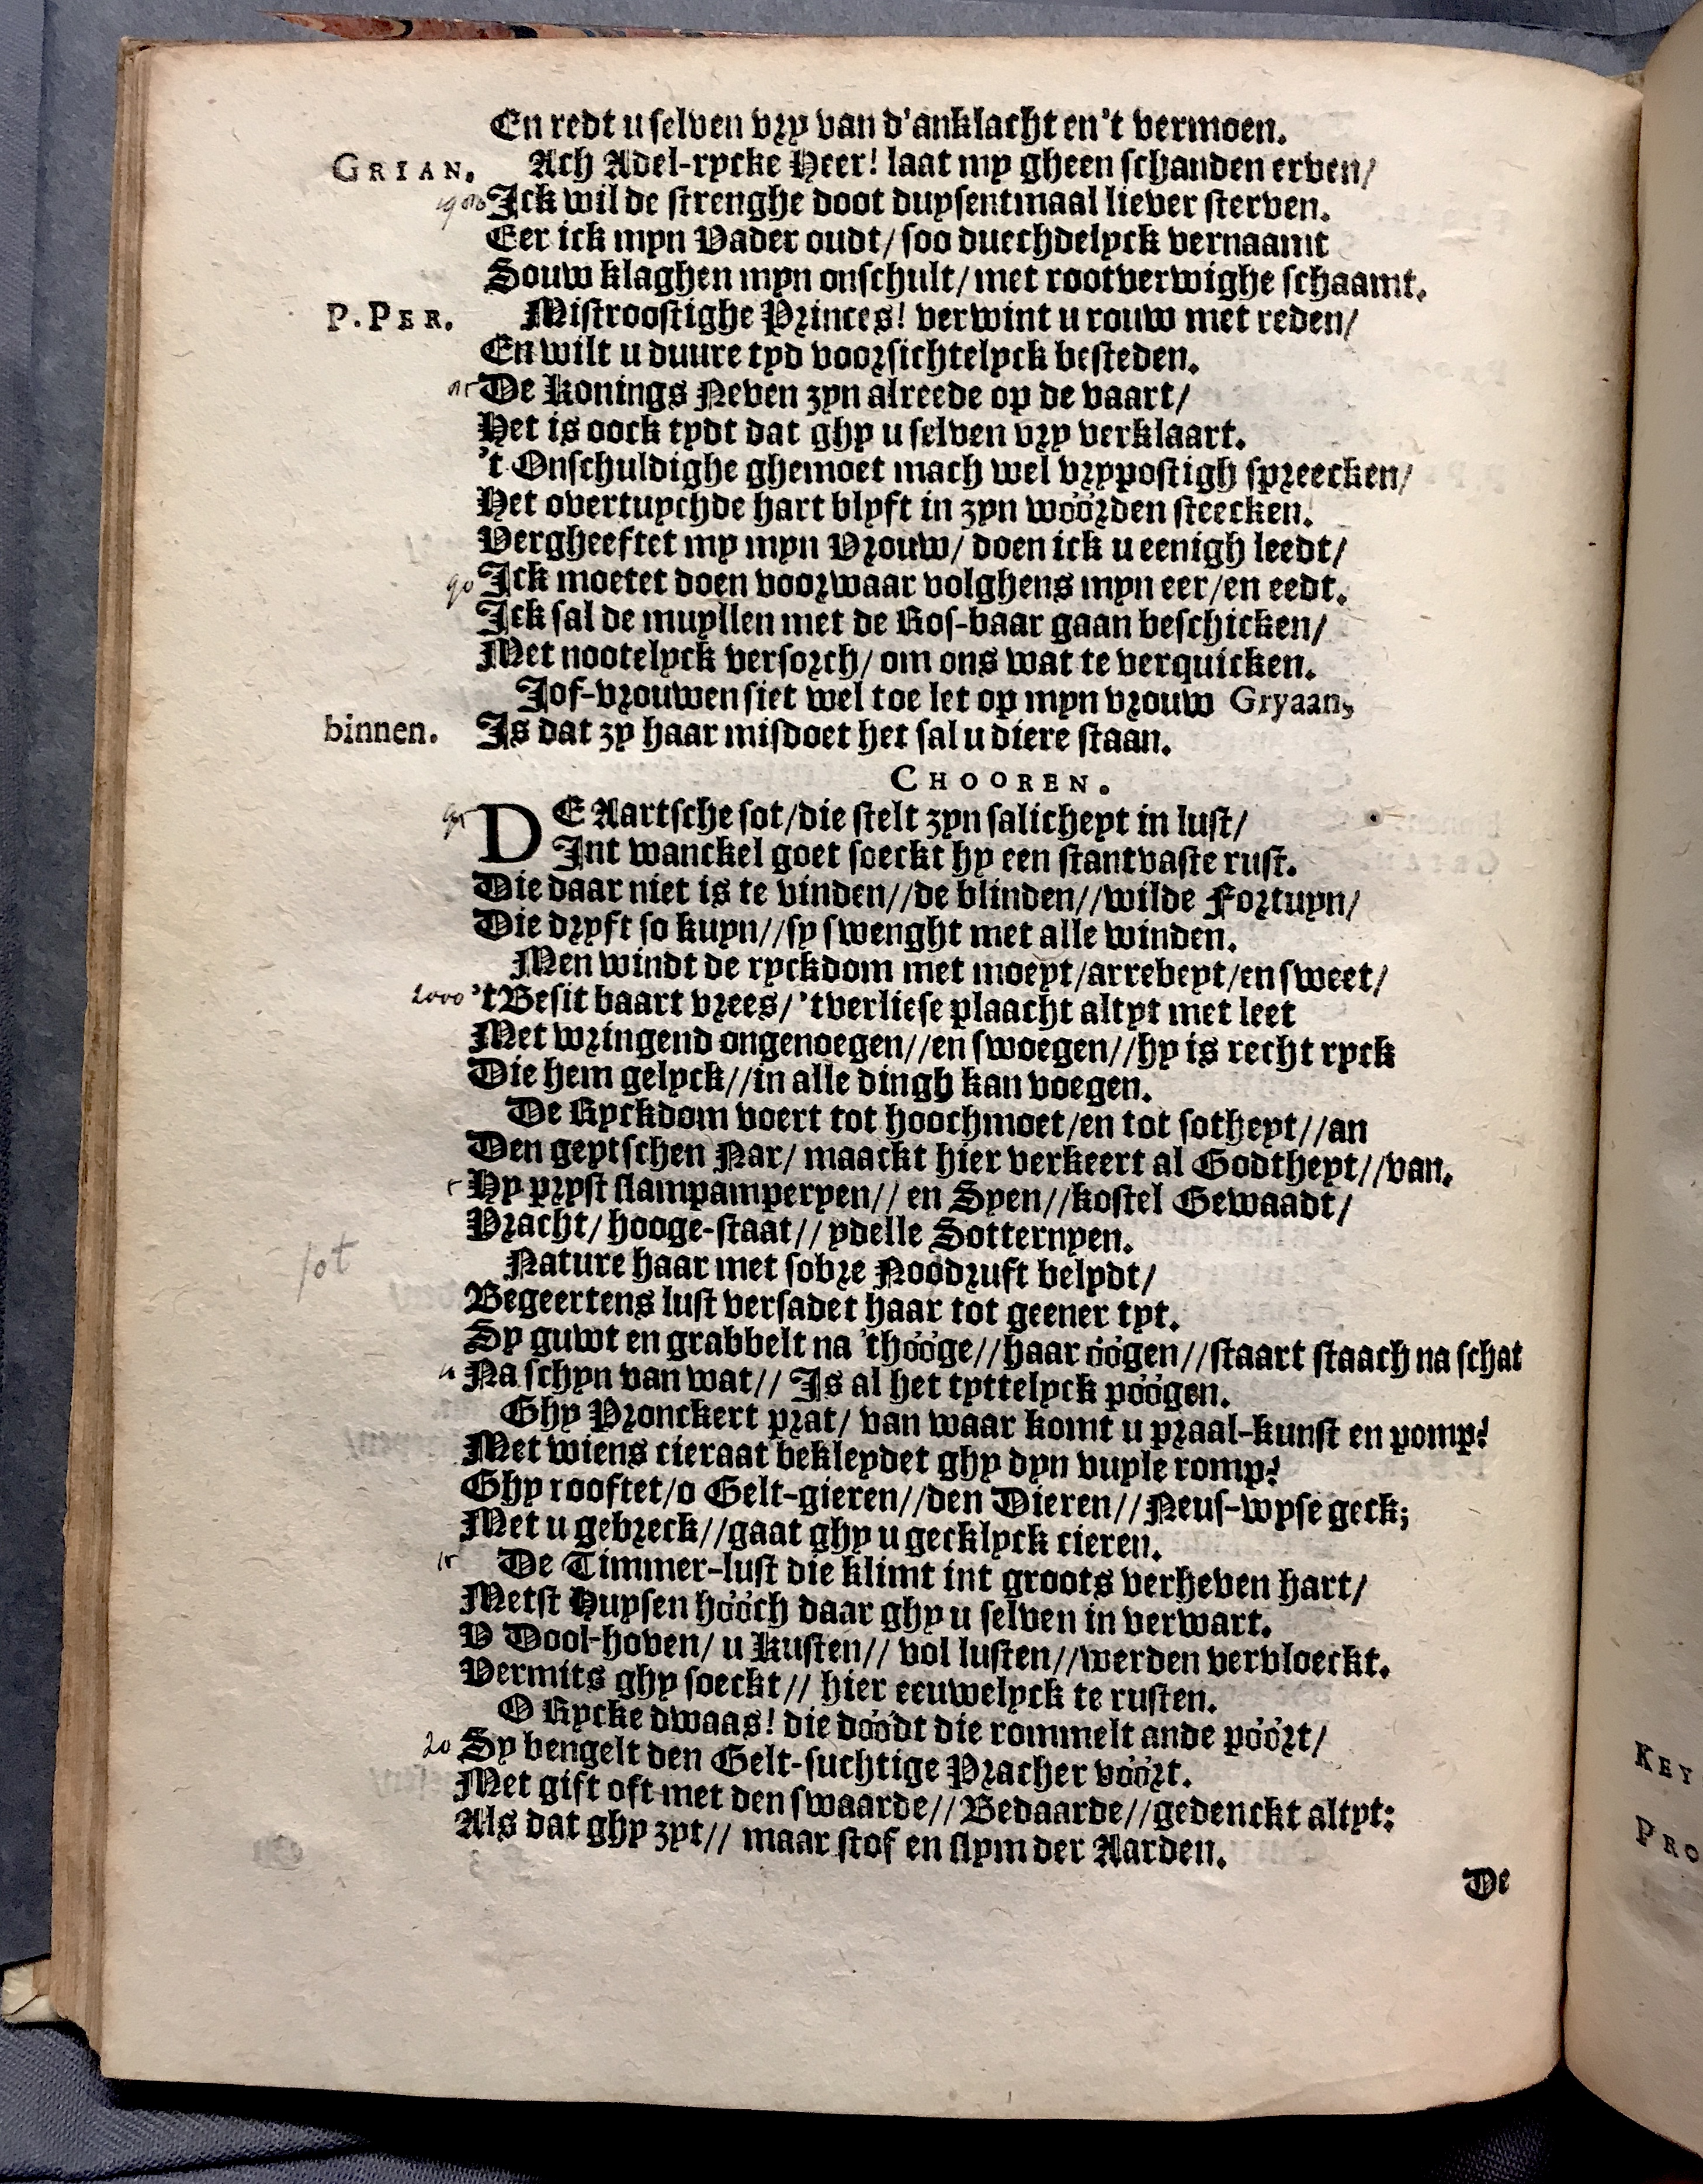 En redt u selven vry van d'anklacht en 't vermoen.
GRIAN. Ach Adel-rycke Heer! laat my gheen schanden erven/
Ick wil de strenghe doot duysentmaal liever sterven.
Eer ick myn Vader oudt/ soo duechdelyck vernaamt
Souw klaghen myn onschult/ met rootverwighe schaamt.
P. PER. Mistroostighe Princes! verwint u rouw met reden/
En wilt u duure tyd voorsichtelyck besteden.
De Konings Neven zyn alreede op de vaart/
Het is oock tydt dat ghy u selven vry verklaart.
't Onschuldighe ghemoet mach wel vrypostigh spreecken/
Het overtuychde hart blyft in zyn wöörden steecken.
Vergheeftet my myn Vrouw/ doen ick u eenigh leedt/
90 Ick moetet doen voorwaar volghens myn eer/en eedt.
Ick sal de muyllen met de Ros-baar gaan beschicken/
Met nootelyck versorch/ om ons wat te verquicken.
Jof-vrouwen siet wel toe let op myn vrouw Gryaan,
binnen. Is dat zy haar misdoet het sal u diere staan.
CHOOREN.
95 DE Aartsche sot/die stelt zyn salicheyt in lust/
Int wanckel goet soeckt hy een stantvaste rust.
Die daar niet is te vinden//de blinden//wilde Fortuyn/
Die dryft so kuyn//sy swenght met alle winden.
Men windt de ryckdom met moeyt/arrebeyt/en sweet/
2000 't Besit baart vrees/ 'tverliese plaacht altyt met leet
Met wringend ongenoegen//en swoegen//hy is recht ryck
Die hem gelyck//in alle dingh kan voegen.
De Ryckdom voert tot hoochmoet/en tot sotheyt//an
Den geytschen Nar/ maackt hier verkeert al Godtheyt//van.
Hy pryst slampamperyen// en Syen//kostel Gewaadt/
Pracht/ hooge-staat// ydelle Sotternyen.
sot
Nature haar met sobre Noödruft belydt/
Begeertens lust versadet haar tot geener tyt.
Sy guwt en grabbelt na 'thööge//haar öögen//staart staach na schat
Na schyn van wat// Is al het tyttelyck pöögen.
Ghy Pronckert prat/ van waar komt u praal-kunst en pomp?
Met wiens cieraat bekleydet ghy dyn vuyle romp?
Ghy rooftet/o Gelt-gieren//den Dieren//Neus-wyse geck;
Met u gebreck//gaat ghy u gecklyck cieren.
15 De Timmer-lust die klimt int groots verheven hart/
Metst Huysen hööch daar ghy u selven in verwart.
V Dool-hoven/ u Kusten// vol lusten//werden vervloeckt.
Vermits ghy soeckt// hier eeuwelyck te rusten.
O Rycke dwaas! die döödt die rommelt ande pöört/
20 Sy bengelt den Gelt-suchtige Pracher vöört.
Met gift oft met den swaarde//Bedaarde//gedenckt altyt:
Als dat ghy zyt// maar stof en slym der Aarden.
De
KEY
PRO